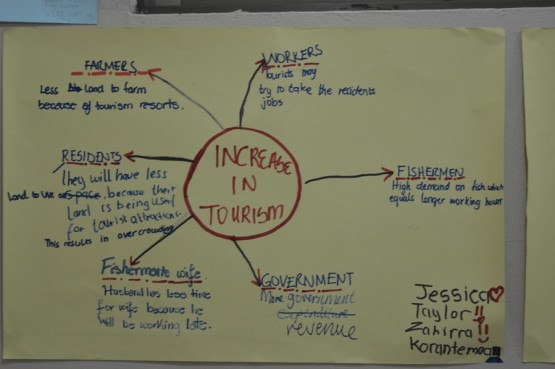 FARMERS
Less land to farm
because of tourism resorts.
WORKERS
Tourists may
try to take the residents
jobs
RESIDENTS
They will have less
Land to live on space, because their
Land is being used
for tourist attractions.
This results in overcrowding
INCREASE
IN
TOURISM
FISHERMEN
High demand on fish which
equals longer working hours
Fishermans wife.
Husband has less time
for wife because he
will be working late.
GOVERNMENT
More government
Expenditure
revenue
Jessica
Taylor!!
Zahirra
Korantemaa